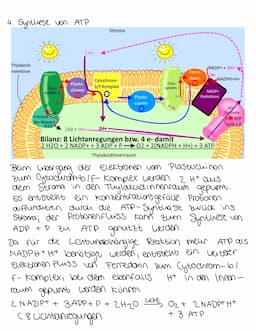 4. Synthese von ATP
Stroma
Thylakoid-
membran
Plasto-
chinon
Cytochrom-
b/f-Komplex
Plasto-
cyanin
NADP+
Reduktase
ADP + P
Bilanz: 8 Lichtanregungen bzw. 4 e- damit
2 H2O + 2 NADP+ + 3 ADP + P → O2 + 2(NADPH + H+) + 3 ATP
Thylakoidinnenraum
Beim Übergang der Elektronen vom Plastochinon
zum Cytochrom-b/f-Komplex werden 2 H⁺ aus
dem Stroma in den Thylakoidinnenraum gepumpt.
Es entsteht ein Konzentrationsgefälle Protonen
diffundieren durch die ATP-Synthase zurück ins
Stroma, der Protonenfluss kann zum Synthese von
ADP + P zu ATP genutzt werden
Da für die Lichtunabhängige Reaktion mehr ATP als
NADPH + H⁺ benötigt werden, entsteht ein weiterer
Elektronenfluss von Ferredoxin zum Cytochrom-b/
f-Komplex, bei dem ebenfalls H⁺ in den Innen-
raum gepumpt werden können
2 NADP⁺ + 3 ADP + P + 2H₂O Licht→ O₂ + 2 NADPH⁺H⁺
(8 Lichtanregungen + 3 ATP